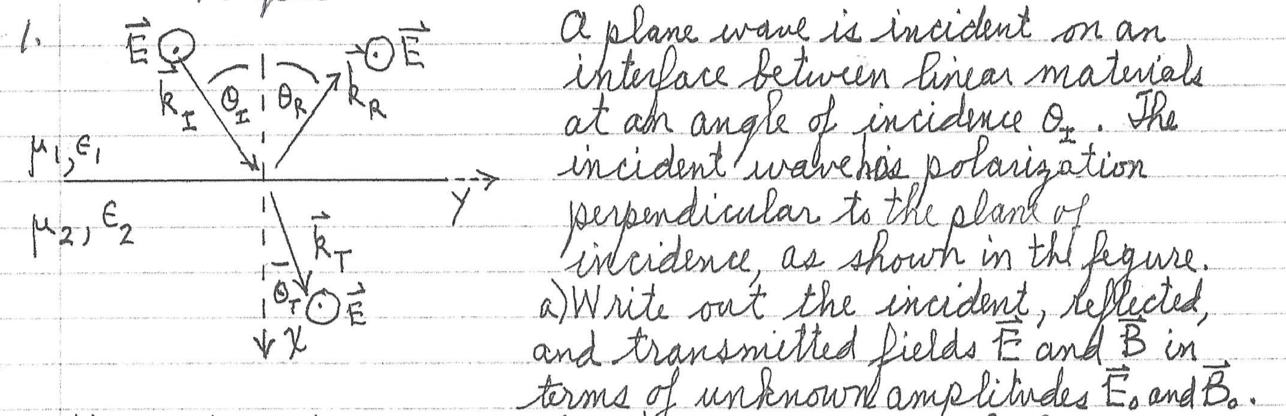 1.
E⃗ k⃗_I θ_I θ_R k⃗_R E⃗
μ₁, ε₁
y
μ₂, ε₂
k⃗_T
θ_T E⃗
x
A plane wave is incident on an
interface between linear materials
at an angle of incidence θ_I. The
incident wave has polarization
perpendicular to the plane of
incidence, as shown in the fegure.
a) Write out the incident, reflected,
and transmitted fields E⃗ and B⃗ in
terms of unknown amplitudes E⃗₀ and B⃗₀.